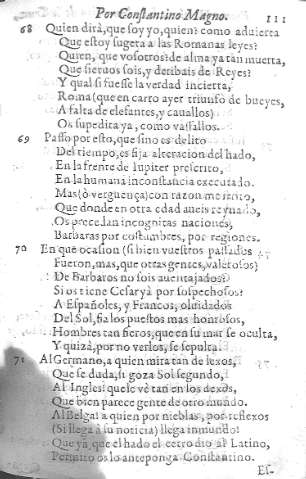 Por Constantino Magno. 111
68 Quien dirà, que soy yo, quien? como aduierta
Que estoy sugeta a las Romanas leyes?
Quien, que vosotros de alma ya tan muerta,
Que sieruos sois, y deribais de Reyes?
Y qual si fuesse la verdad incierta,
Roma (que en carro ayer triunfo de bueyes,
A falta de elefantes, y cauallos)
Os supedita ya, como vassallos.
69 Passo por esto, que sino es delito
Del tiempo, es fija alteracion del hado,
En la frente de Iupiter prescrito,
En la humana inconstancia executado.
Mas (ò verguença) con razon me irrito,
Que donde en otra edad aueis reynado,
Os precedan incognitas naciones,
Barbaras por costumbres, por regiones.
70 En que ocasion (si bien vuestros passados
Fueron, mas, que otras gentes, valerosos)
De Barbaros no sois auentajados?
Si os tiene Cesar yà por sospechosos?
A Españoles, y Francos, oluidados
Del Sol, fia los puestos mas honrosos,
Hombres tan fieros, que en su mar se oculta,
Y quizà, por no verlos, se sepulta.
71 Al Germano, a quien mira tan de lexos,
Que se duda, si goza Sol segundo,
Al Ingles que le vè tan en los dexos,
Que bien parece gente de otro mundo.
Al Belga a quien por nieblas, por reflexos
(Si llega à su noticia) llega inmundo:
Que yà, que el hado el cetro dio al Latino,
Permito os lo anteponga Constantino.
Es-